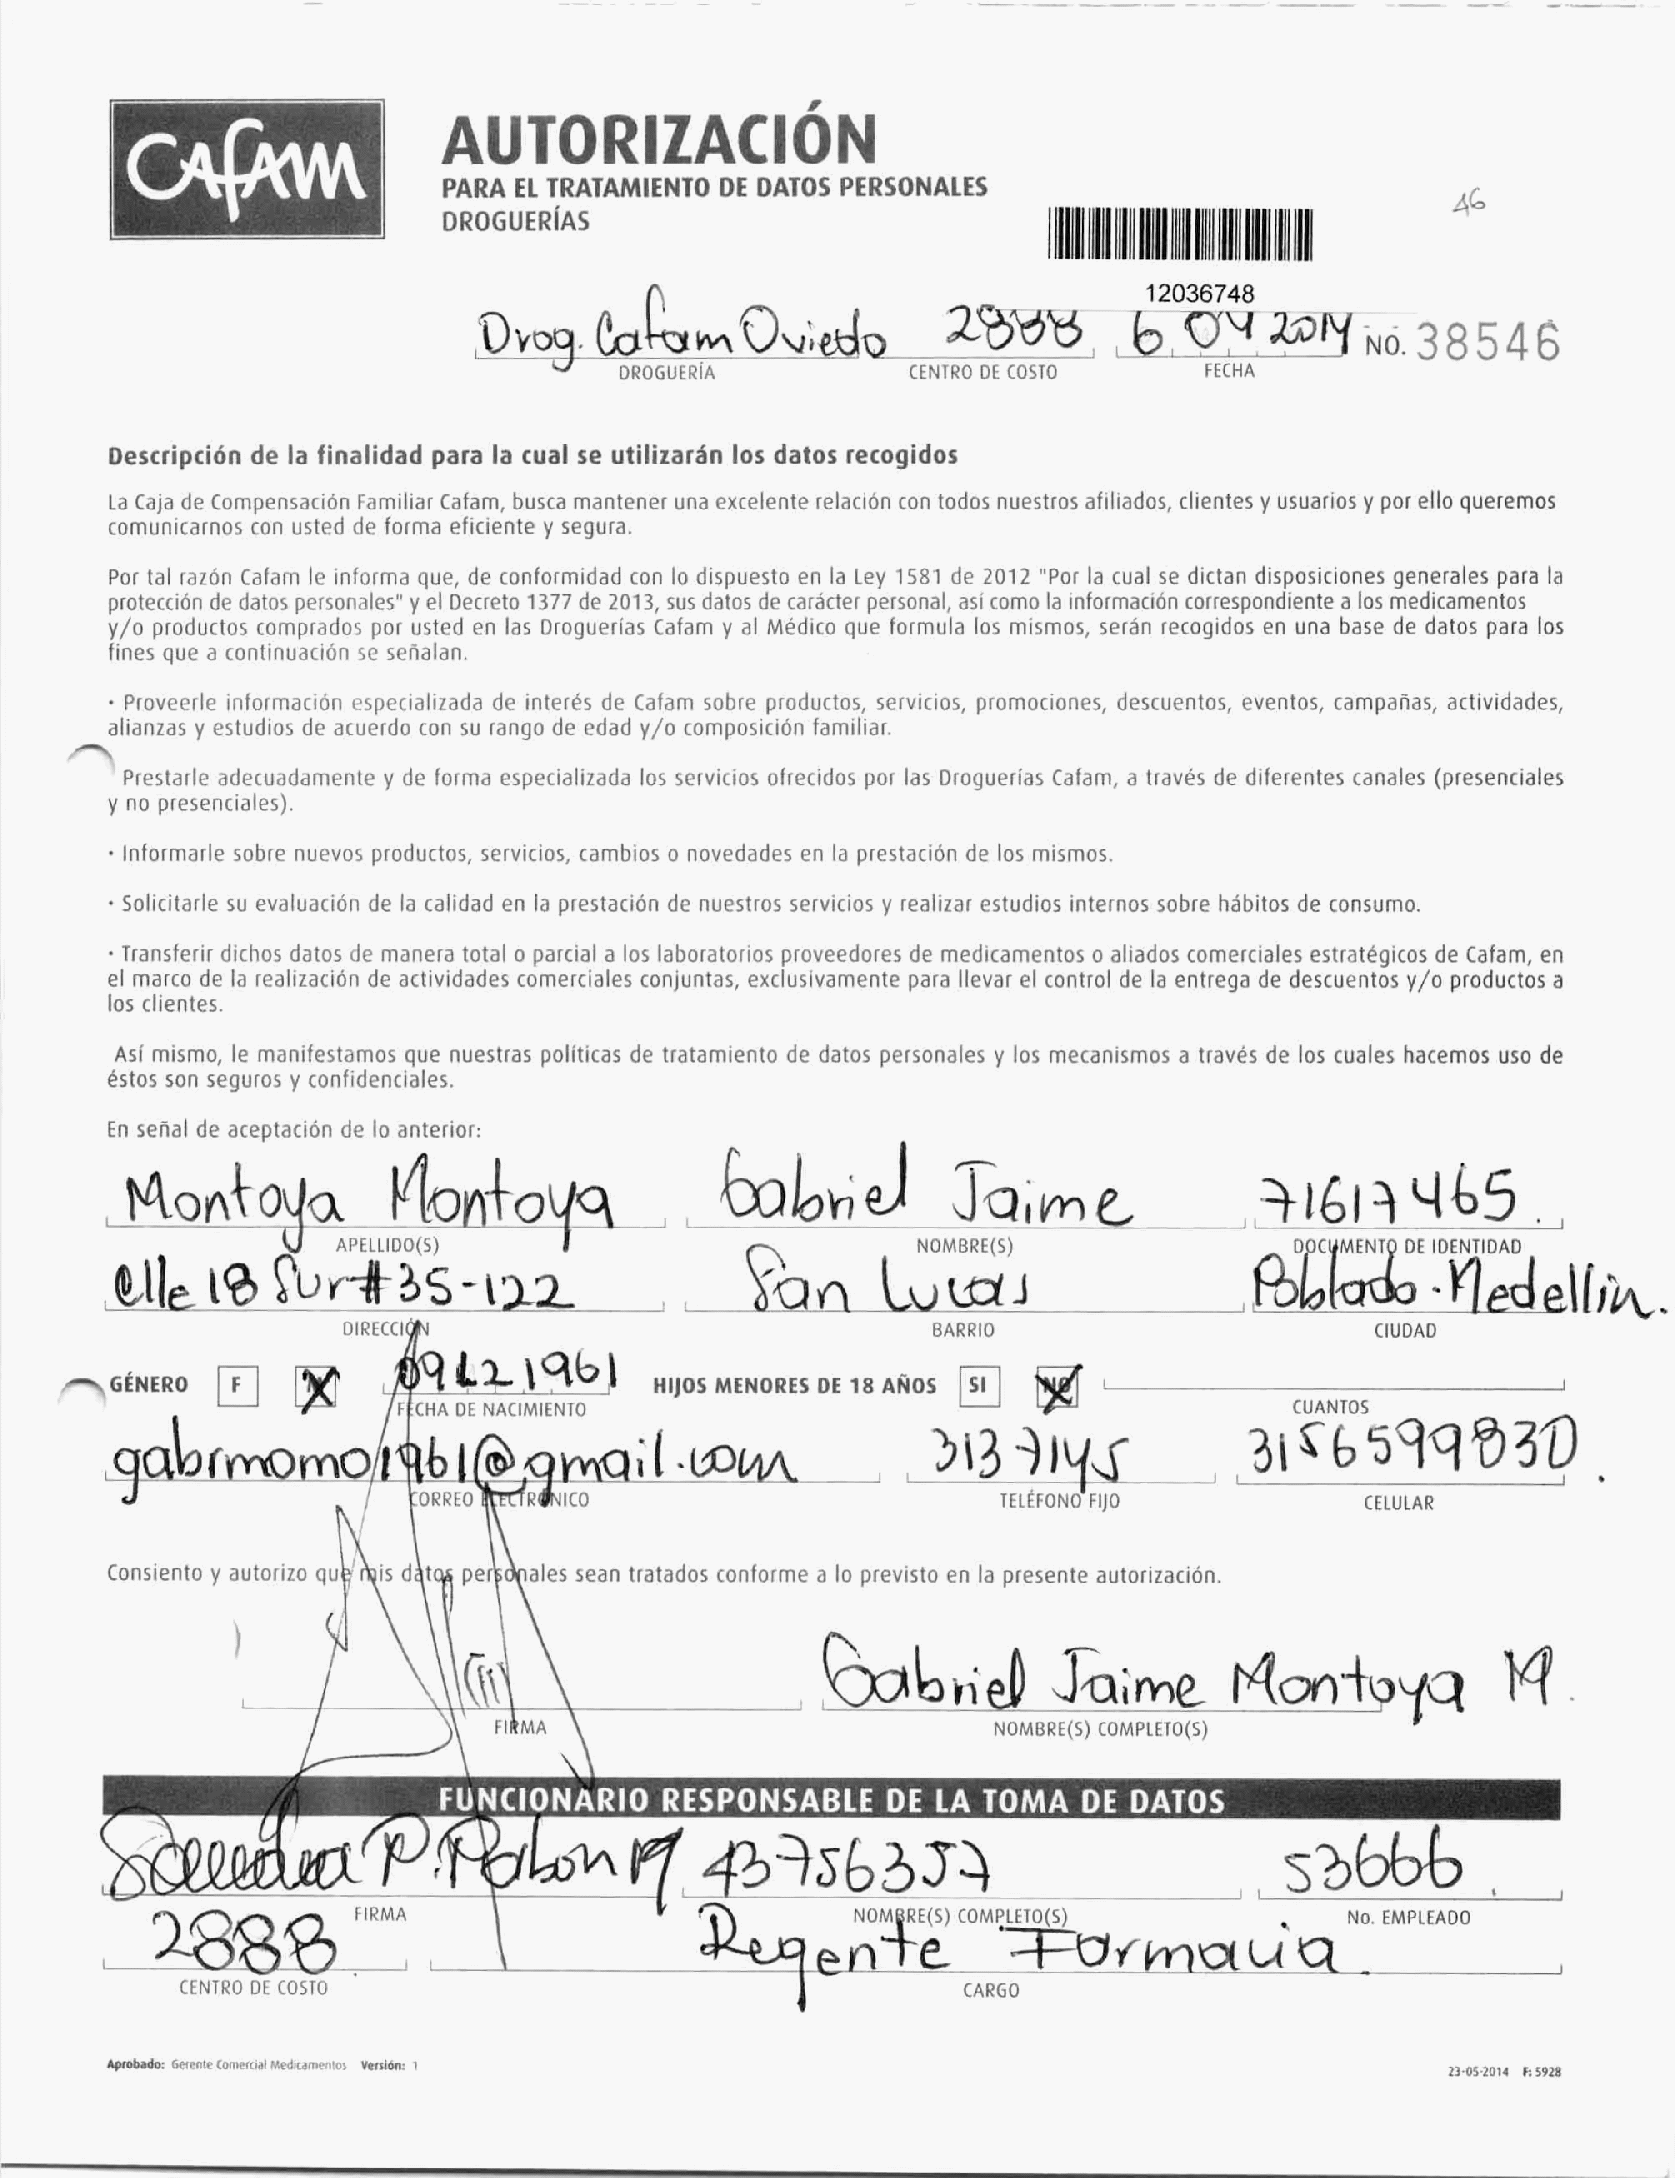 CAFAM
AUTORIZACIÓN
PARA EL TRATAMIENTO DE DATOS PERSONALES
DROGUERÍAS
46
12036748
Drog. Cafam Oviedo 2888 6 04 2014 NO. 38546
DROGUERÍA CENTRO DE COSTO FECHA
Descripción de la finalidad para la cual se utilizarán los datos recogidos
La Caja de Compensación Familiar Cafam, busca mantener una excelente relación con todos nuestros afiliados, clientes y usuarios y por ello queremos
comunicarnos con usted de forma eficiente y segura.
Por tal razón Cafam le informa que, de conformidad con lo dispuesto en la Ley 1581 de 2012 "Por la cual se dictan disposiciones generales para la
protección de datos personales" y el Decreto 1377 de 2013, sus datos de carácter personal, así como la información correspondiente a los medicamentos
y/o productos comprados por usted en las Droguerías Cafam y al Médico que formula los mismos, serán recogidos en una base de datos para los
fines que a continuación se señalan.
· Proveerle información especializada de interés de Cafam sobre productos, servicios, promociones, descuentos, eventos, campañas, actividades,
alianzas y estudios de acuerdo con su rango de edad y/o composición familiar.
Prestarle adecuadamente y de forma especializada los servicios ofrecidos por las Droguerías Cafam, a través de diferentes canales (presenciales
y no presenciales).
· Informarle sobre nuevos productos, servicios, cambios o novedades en la prestación de los mismos.
· Solicitarle su evaluación de la calidad en la prestación de nuestros servicios y realizar estudios internos sobre hábitos de consumo.
· Transferir dichos datos de manera total o parcial a los laboratorios proveedores de medicamentos o aliados comerciales estratégicos de Cafam, en
el marco de la realización de actividades comerciales conjuntas, exclusivamente para llevar el control de la entrega de descuentos y/o productos a
los clientes.
Así mismo, le manifestamos que nuestras políticas de tratamiento de datos personales y los mecanismos a través de los cuales hacemos uso de
éstos son seguros y confidenciales.
En señal de aceptación de lo anterior:
Montoya Montoya Gabriel Jaime 71617465
APELLIDO(S) NOMBRE(S) DOCUMENTO DE IDENTIDAD
Clle 18 Sur # 35-122 San Lucas Poblado - Medellin.
DIRECCIÓN BARRIO CIUDAD
GÉNERO F X 09121961 HIJOS MENORES DE 18 AÑOS SI NO
FECHA DE NACIMIENTO CUANTOS
gabrmomo1961@gmail.com 3137145 3156599830.
CORREO ELECTRÓNICO TELÉFONO FIJO CELULAR
Consiento y autorizo que mis datos personales sean tratados conforme a lo previsto en la presente autorización.
Gabriel Jaime Montoya M.
FIRMA NOMBRE(S) COMPLETO(S)
FUNCIONARIO RESPONSABLE DE LA TOMA DE DATOS
P. Pabon M 43756357 53666
FIRMA NOMBRE(S) COMPLETO(S) No. EMPLEADO
2888 Regente Farmacia
CENTRO DE COSTO CARGO
Aprobado: Gerente Comercial Medicamentos Versión: 1
23-05-2014 F: 5928